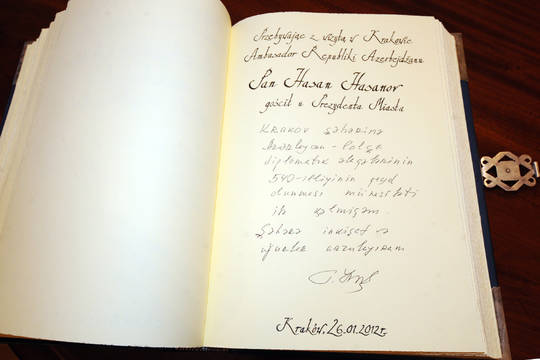 Przebywając z wizytą w Krakowie
Ambasador Republiki Azerbejdżanu
Pan Hasan Hasanov
gościł u Prezydenta Miasta
Krakov şəhərinə
Azərbaycan-Polşa
diplomatik əlaqələrinin
540-illiyinin qeyd
olunması münasibəti
ilə gəlmişəm.
Şəhərə inkişaf və
uğurlar arzulayıram
Kraków, 26.01.2012r.